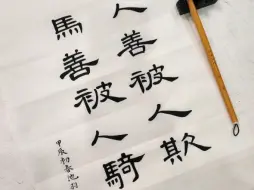 人善被人欺
馬善被人騎
甲辰初春池羽